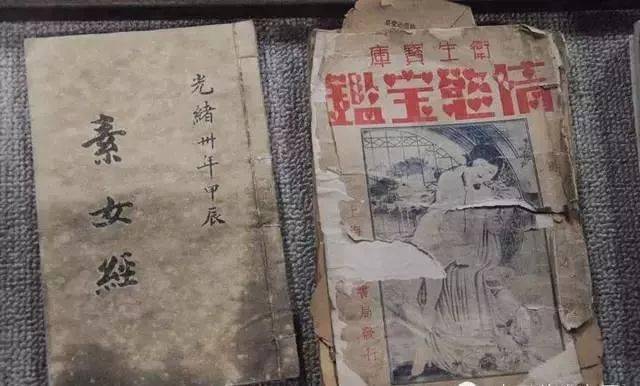 光緒卅年甲辰
素女經
衛生寶庫
情慾宝鑑
上海
書局發行